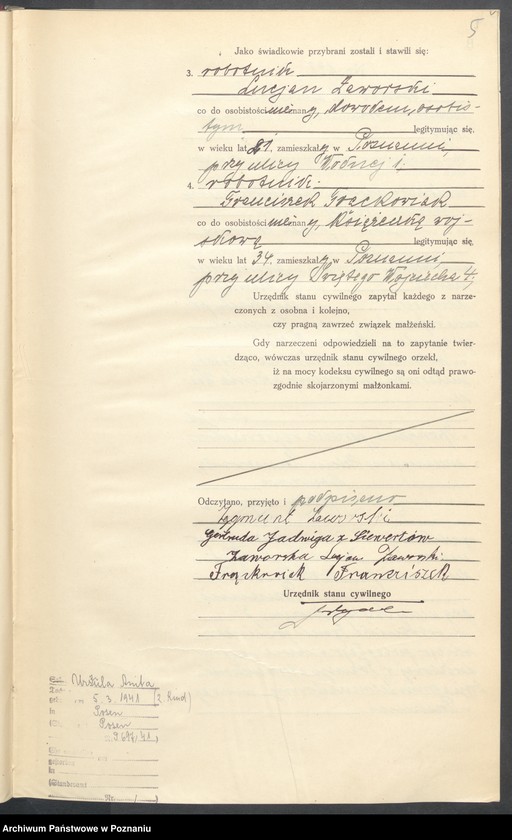 5
Jako świadkowie przybrani zostali i stawili się:
3. robotnik
Lucjan Zaworski
co do osobistości znany, dowodem osobis-
tym legitymując się,
w wieku lat 21, zamieszkały w Poznaniu,
przy ulicy Wodnej 1
4. robotnik
Franciszek
co do osobistości znany, książeczką woj-
skową legitymując się,
w wieku lat 34, zamieszkały w Poznaniu
przy ulicy Świętego Wojciecha 4;
Urzędnik stanu cywilnego zapytał każdego z narze-
czonych z osobna i kolejno,
czy pragną zawrzeć związek małżeński.
Gdy narzeczeni odpowiedzieli na to zapytanie twier-
dząco, wówczas urzędnik stanu cywilnego orzekł,
iż na mocy kodeksu cywilnego są oni odtąd prawo-
zgodnie skojarzonymi małżonkami.
Odczytano, przyjęto i podpisano
Zygmunt Zaworski
Gertruda Jadwiga z Siewertów
Zaworska Lucjan Zaworski
Frąckowiak Franciszek
Urzędnik stanu cywilnego
Urszula Anita
5. 3. 1941 (2. Kind)
in Posen
Posen
Nr. /
Archiwum Państwowe w Poznaniu